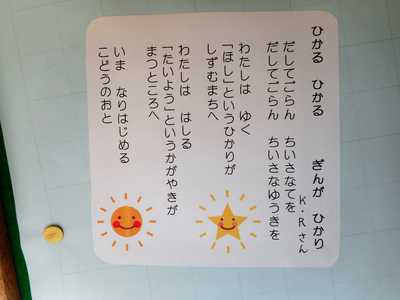 ひかる　ひかる　　ぎんが　ひかり
K・Rさん
だしてごらん　ちいさなてを
だしてごらん　ちいさなゆうきを
わたしは　ゆく
「ほし」というひかりが
しずむまちへ
わたしは　はしる
「たいよう」というかがやきが
まつところへ
いま　なりはじめる
こどうのおと